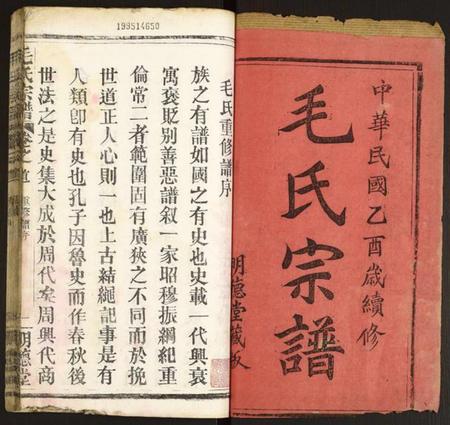 中華民國乙酉歲續修
毛氏宗譜
明德堂藏板
199514650
毛氏重修譜序
族之有譜如國之有史也史載一代興衰
寓褒貶别善惡譜叙一家昭穆振綱紀重
倫常二者範圍固有廣狹之不同而於挽
世道正人心則一也上古結繩記事是有
人類卽有史也孔子因魯史而作春秋後
世法之是史集大成於周代矣周興代商
毛氏宗譜 卷首 重修譜序 一 明德堂